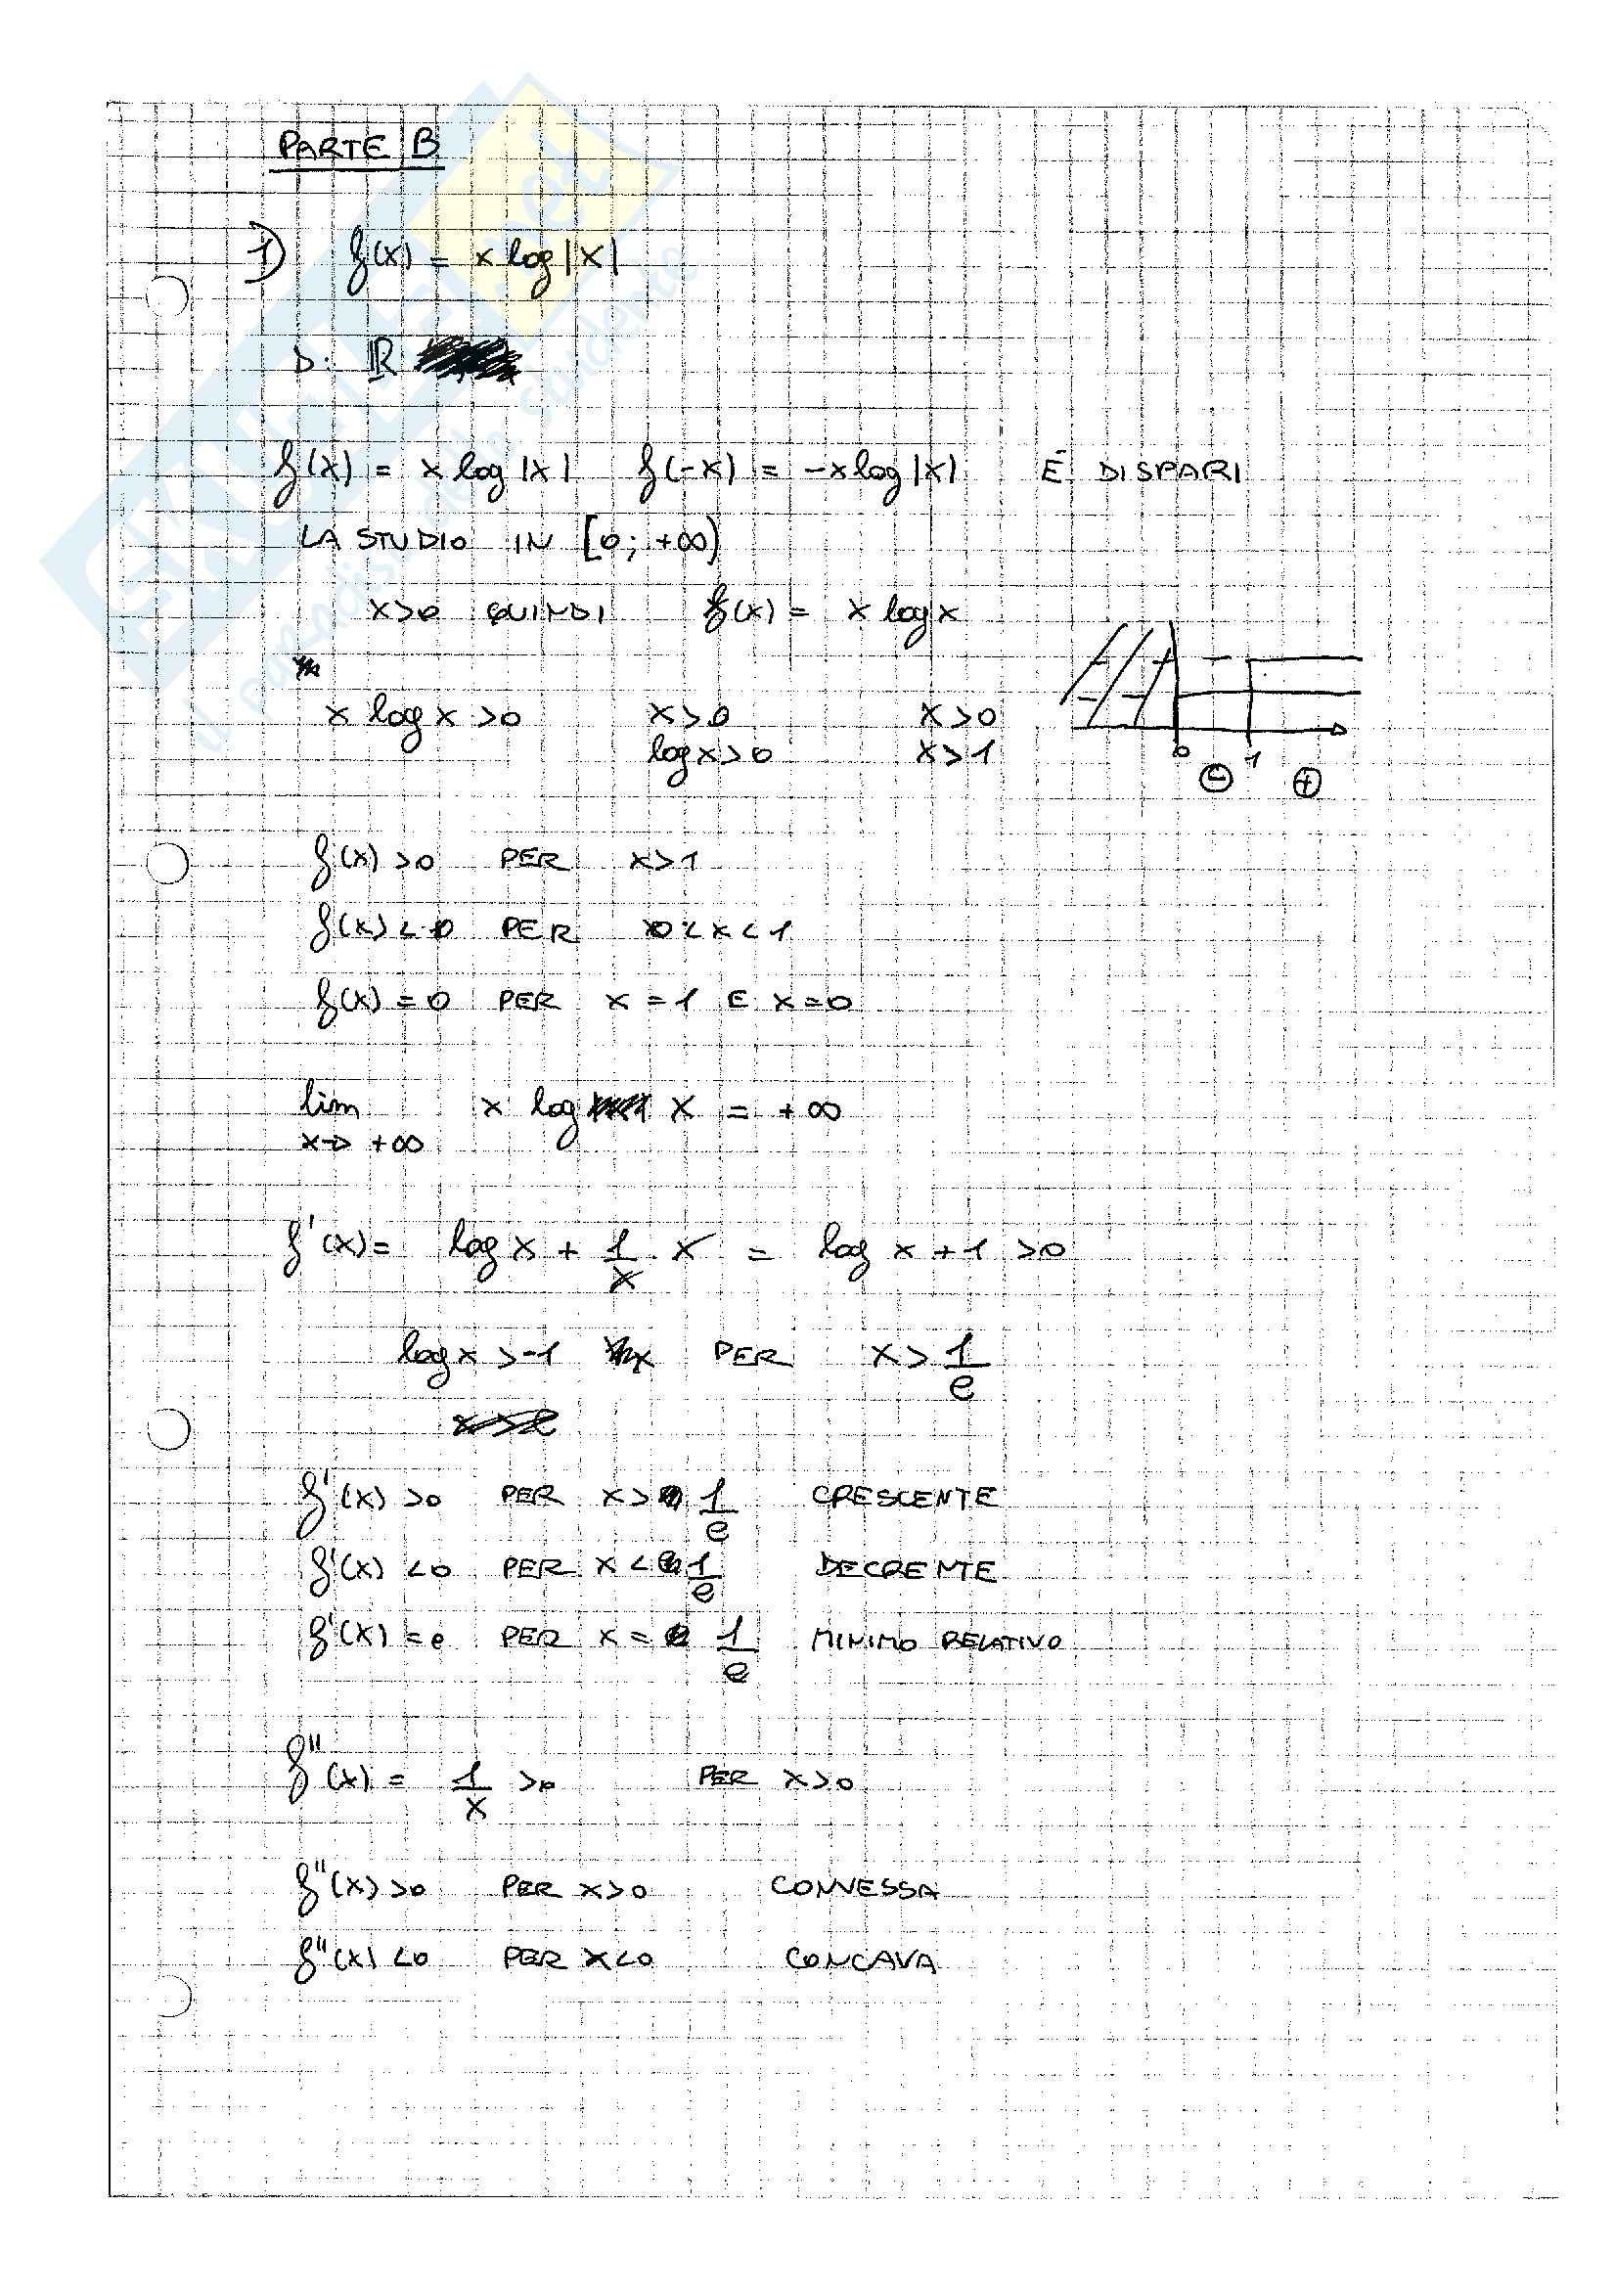 PARTE B
1) f(x) = x log |x|
D: ℝ
f(x) = x log |x| f(-x) = -x log |x| È DISPARI
LA STUDIO IN [0; +∞)
x>0 QUINDI f(x) = x log x
x log x >0 x>0 x>0
log x>0 x>1
0 1
⊖ ⊕
f(x) >0 PER x>1
f(x) < 0 PER 0<x<1
f(x) = 0 PER x = 1 E x=0
lim x log x = +∞
x→ +∞
f'(x) = log x + 1/x · x = log x + 1 >0
log x > -1 PER x > 1/e
f'(x) >0 PER x > 1/e CRESCENTE
f'(x) <0 PER x < 1/e DECRENTE
f'(x) = 0 PER x = 1/e MINIMO RELATIVO
f''(x) = 1/x >0 PER x>0
f''(x) >0 PER x>0 CONVESSA
f''(x) <0 PER x<0 CONCAVA